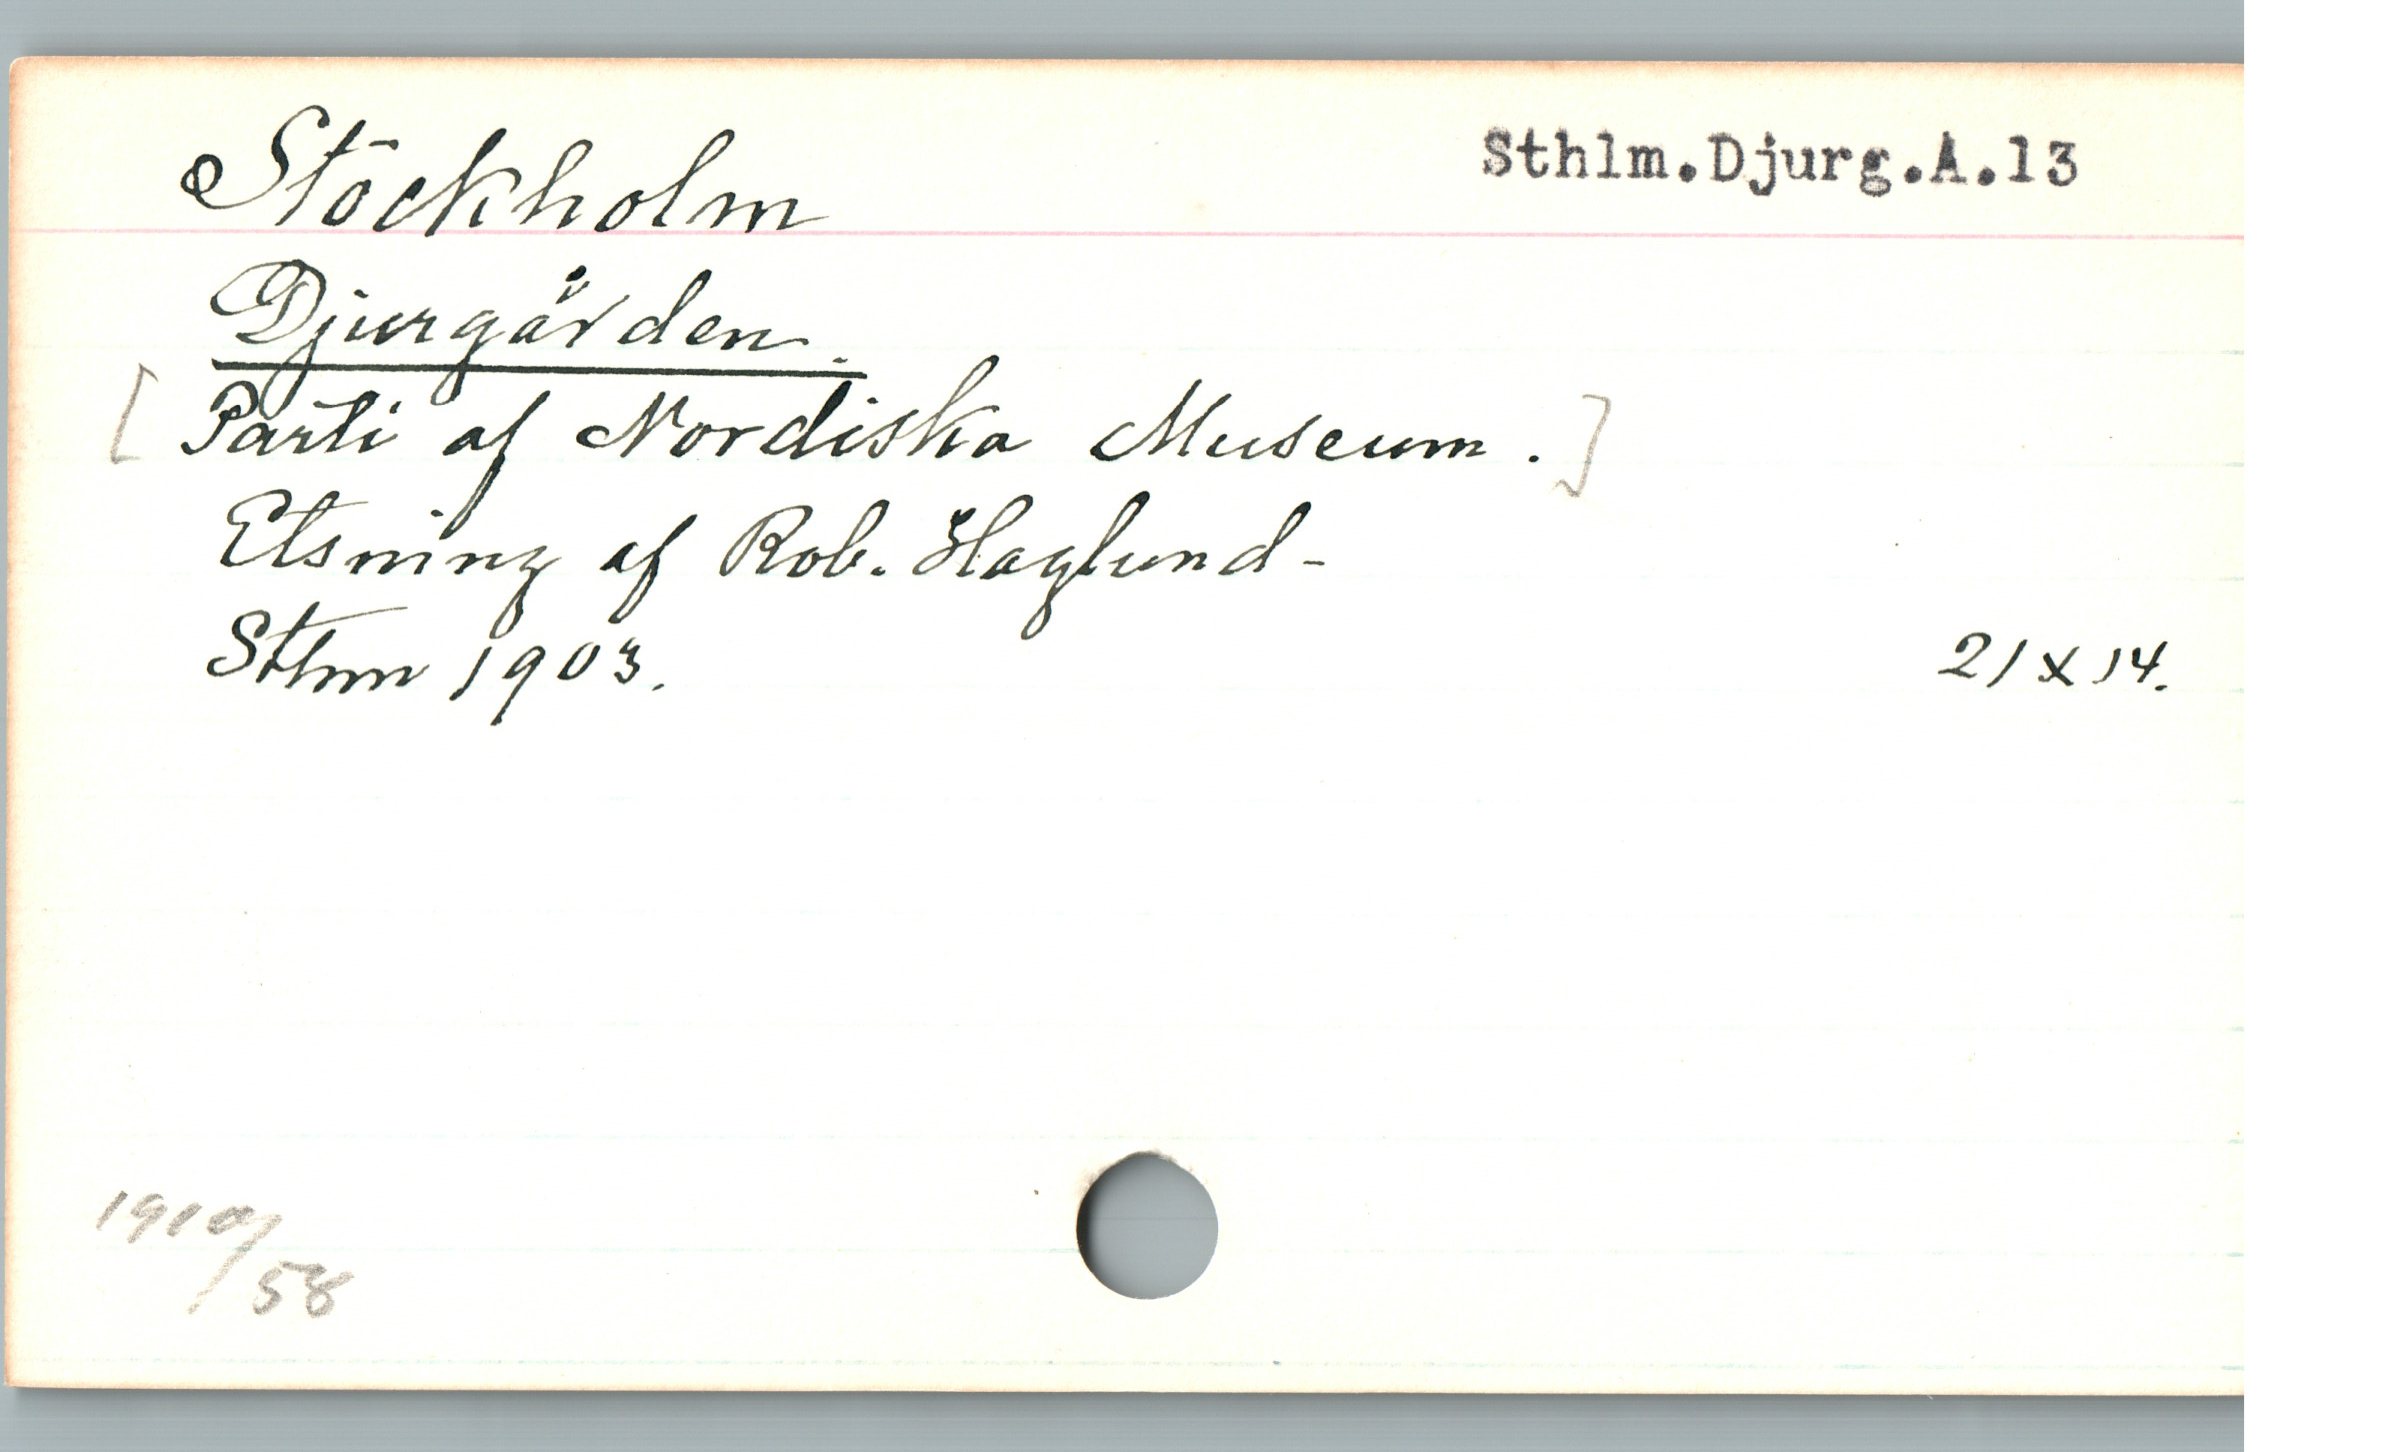 Stockholm Sthlm.Djurg.A.13
Djurgården.
[Parti af Nordiska Museum.]
Etsning af Rob. Haglund-
Sthm 1903. 21 x 14.
1910/58